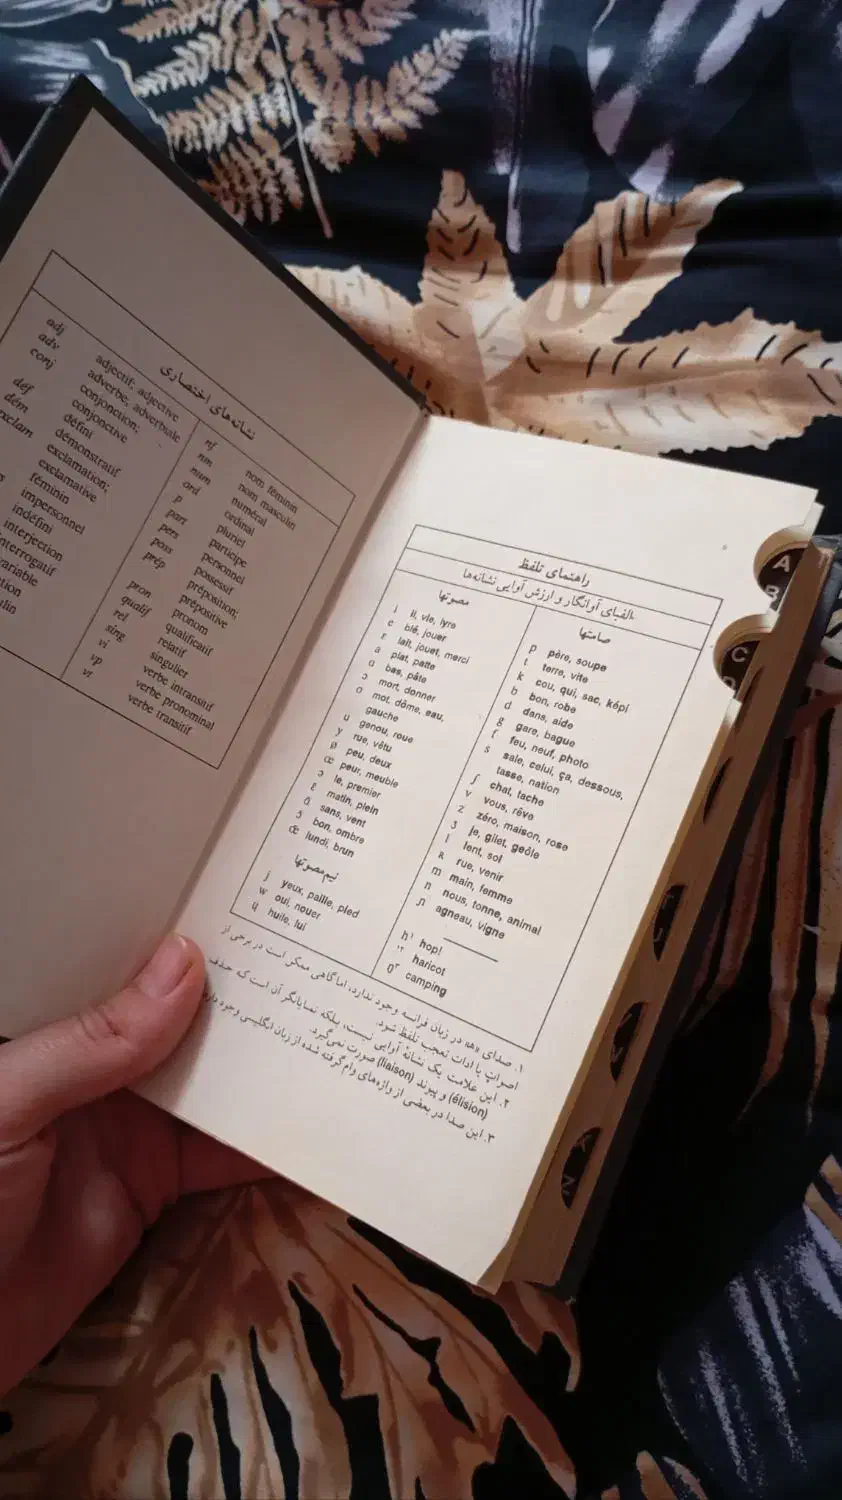 نشانه‌های اختصاری
adj adjectif; adjective
adv adverbe; adverbiale
conj conjonction;
conjonctive
déf défini
dém démonstratif
exclam exclamation;
exclamative
féminin
impersonnel
indéfini
interjection
interrogatif
nf nom féminin
nm nom masculin
num numéral
ord ordinal
p pluriel
part participe
pers personnel
poss possessif
prép préposition;
prépositive
pron pronom
qualif qualificatif
rel relatif
sing singulier
vi verbe intransitif
vp verbe pronominal
vt verbe transitif
راهنمای تلفظ
الفبای آوانگار و ارزش آوایی نشانه‌ها
مصوتها
i il, vie, lyre
e blé, jouer
ɛ lait, jouet, merci
a plat, patte
ɑ bas, pâte
ɔ mort, donner
o mot, dôme, eau,
gauche
u genou, roue
y rue, vêtu
ø peu, deux
œ peur, meuble
ə le, premier
ɛ̃ matin, plein
ɑ̃ sans, vent
ɔ̃ bon, ombre
œ̃ lundi, brun
نیم‌مصوتها
j yeux, paille, pied
w oui, nouer
ɥ huile, lui
صامتها
p père, soupe
t terre, vite
k cou, qui, sac, képi
b bon, robe
d dans, aide
g gare, bague
f feu, neuf, photo
s sale, celui, ça, dessous,
tasse, nation
ʃ chat, tache
v vous, rêve
z zéro, maison, rose
ʒ je, gilet, geôle
l lent, sol
ʀ rue, venir
m main, femme
n nous, tonne, animal
ɲ agneau, vigne
h۱ hop!
'۲ haricot
ŋ۳ camping
۱. صدای «h» در زبان فرانسه وجود ندارد، اما گاهی ممکن است در برخی از
اصوات یا ادات تعجب تلفظ شود.
۲. این علامت یک نشانهٔ آوایی نیست، بلکه نمایانگر آن است که حذف
(élision) و پیوند (liaison) صورت نمی‌گیرد.
۳. این صدا در بعضی از واژه‌های وام‌گرفته شده از زبان انگلیسی وجود دارد
A
B
C